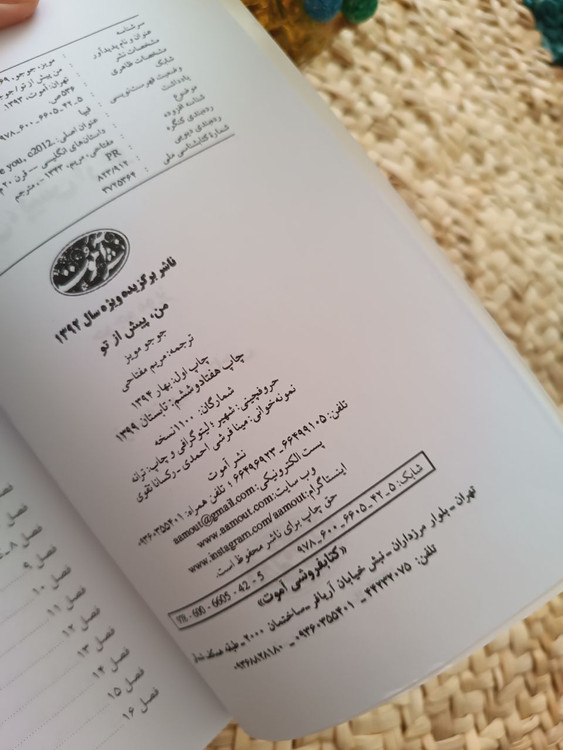 سرشناسه : مویز، جوجو، ۶۹
عنوان و نام پدیدآور : من پیش از تو/ جو
مشخصات نشر : تهران: آموت، ۱۳۹۳.
مشخصات ظاهری : ۵۳۶ ص.
شابک : ۹۷۸_۶۰۰_۶۶۰۵_۴۲_۵
وضعیت فهرست‌نویسی : فیپا
یادداشت : عنوان اصلی: e you, c2012.
موضوع : داستان‌های انگلیسی -- قرن ۲۰ م
شناسه افزوده : مفتاحی، مریم، ۱۳۴۳ - ، مترجم
رده‌بندی کنگره : PR
رده‌بندی دیویی : ۸۲۳/۹۱۴
شمارهٔ کتابشناسی ملی : ۳۷۲۵۳۶۴
نشر آموت
ناشر برگزیده ویژه سال ۱۳۹۲
من، پیش از تو
جوجو مویز
ترجمه: مریم مفتاحی
چاپ اول: بهار ۱۳۹۴
چاپ هفتادوششم: تابستان ۱۳۹۹
شمارگان: ۱۱۰۰ نسخه
حروفچینی: شهیر؛ لیتوگرافی و چاپ: ترانه
نمونه‌خوانی: مینا فرشی احمدی ـ رکسانا تقوی
نشر آموت
تلفن: ۶۶۴۹۹۱۰۵ـ۶۶۴۹۶۹۲۳ ؛ تلفن همراه: ۰۹۳۶۰۳۵۵۴۰۱
پست الکترونیکی: aamout@gmail.com
وب سایت: www.aamout.com
اینستاگرام: www.instagram.com/aamout
حق چاپ برای ناشر محفوظ است.
شابک: ۵_۴۲_۶۶۰۵_۶۰۰_۹۷۸
978 - 600 - 6605 - 42 - 5
«کتابفروشی آموت»
تهران ـ بلوار مرزداران ـ نبش خیابان آریافر ـ ساختمان ۲۰۰۰ ـ طبقه همکف
تلفن: ۴۴۲۳۲۰۷۵ ـ ۰۹۳۶۰۳۵۵۴۰۱ ـ ۰۹۳۶۸۸۲۸۱۸۰
فصل
فصل
فصل ۸
فصل ۹
فصل ۱۰
فصل ۱۱
فصل ۱۲
فصل ۱۳
فصل ۱۴
فصل ۱۵
فصل ۱۶